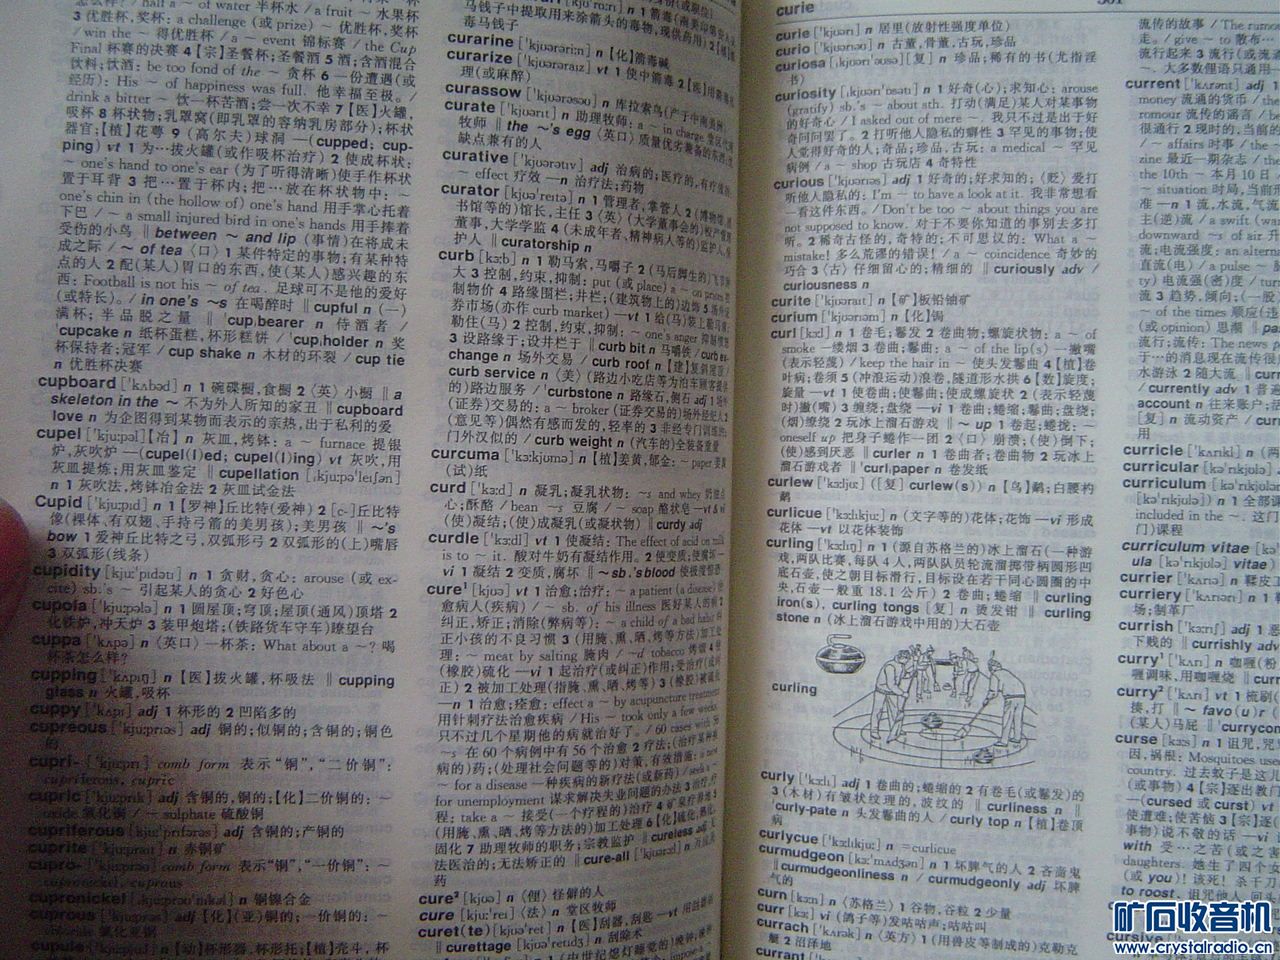 怎么样? / half a ~ of water 半杯水 / a fruit ~ 水果杯
3 优胜杯,奖杯: a challenge (或 prize) ~ 优胜杯,奖杯
/ win the ~ 得优胜杯 / a ~ event 锦标赛 / the Cup
Final 杯赛的决赛 4【宗】圣餐杯;圣餐酒 5 酒;含酒混合
饮料;饮酒: be too fond of the ~ 贪杯 6 一份遭遇(或
经历): His ~ of happiness was full. 他幸福至极。/
drink a bitter ~ 饮一杯苦酒;尝一次不幸 7【医】火罐,
吸杯 8 杯状物;乳罩窝(即乳罩的容纳乳房部分);杯状
器官;【植】花萼 9 (高尔夫)球洞 —(cupped; cup-
ping) vt 1 为…拔火罐(或作吸杯治疗) 2 使成杯状:
~ one's hand to one's ear (为了听得清晰)使手作杯状
置于耳背 3 把…置于杯内;把…放在杯状物中: ~
one's chin in (the hollow of) one's hand 用手掌心托着
下巴 / ~ a small injured bird in one's hands 用手捧着
受伤的小鸟 ‖ between ~ and lip (事情)在将成未
成之际 / ~ of tea〈口〉1 某件特定的事物;有某种特
点的人 2 配(某人)胃口的东西,使(某人)感兴趣的东
西: Football is not his ~ of tea. 足球可不是他的爱好
(或特长)。/ in one's ~s 在喝醉时 ‖ cupful n (一)
满杯;半品脱之量 ‖ 'cup,bearer n 侍酒者 /
'cupcake n 纸杯蛋糕,杯形糕饼 / 'cup,holder n 奖
杯保持者;冠军 / cup shake n 木材的环裂 / cup tie
n 优胜杯决赛
cupboard ['kʌbəd] n 1 碗碟橱,食橱 2〈英〉小橱 ‖ a
skeleton in the ~ 不为外人所知的家丑 ‖ cupboard
love n 为企图得到某物而表示的亲热,出于私利的爱
cupel ['kju:pəl]【冶】n 灰皿,烤钵: a ~ furnace 提银
炉,灰吹炉 —(cupel(l)ed; cupel(l)ing) vt 灰吹,用
灰皿提炼;用灰皿鉴定 ‖ cupellation [,kju:pə'leiʃən]
n 1 灰吹法,烤钵冶金法 2 灰皿试金法
Cupid ['kju:pid] n 1【罗神】丘比特(爱神) 2 [c-]丘比特
像(裸体、有双翅、手持弓箭的美男孩);美男孩 ‖ ~'s
bow 1 爱神丘比特之弓,双弧形弓 2 双弧形的(上)嘴唇
3 双弧形(线条)
cupidity [kju:'pidəti] n 1 贪财,贪心: arouse (或 ex-
cite) sb.'s ~ 引起某人的贪心 2 好色心
cupola ['kju:pələ] n 1 圆屋顶;穹顶;屋顶(通风)顶塔 2
化铁炉,冲天炉 3 装甲炮塔;(铁路货车守车)瞭望台
cuppa ['kʌpə] n〈英口〉一杯茶: What about a ~? 喝
杯茶怎么样?
cupping ['kʌpiŋ] n【医】拔火罐,杯吸法 ‖ cupping
glass n 火罐,吸杯
cuppy ['kʌpi] adj 1 杯形的 2 凹陷多的
cupreous ['kju:priəs] adj 铜的;似铜的;含铜的;铜色
的
cupri- ['kju:pri] comb form 表示“铜”,“二价铜”:
cupriferous, cupric
cupric ['kju:prik] adj 含铜的,铜的;【化】二价铜的: ~
oxide 氧化铜 / ~ sulphate 硫酸铜
cupriferous [kju:'prifərəs] adj 含铜的;产铜的
cuprite ['kju:prait] n 赤铜矿
cupro- ['kju:prəu] comb form 表示“铜”,“一价铜”:
cupronickel, cuprous
cupronickel n 铜镍合金
cuprous ['kju:prəs] adj【化】(亚)铜的;一价铜的: ~
chloride 氯化亚铜
cupule n【动】杯形器,杯形托;【植】壳斗,杯
马钱子中提取用来涂箭头的毒物,现供药用)
毒马钱子
curarine n【化】箭毒碱
curarize vt 1 使中箭毒 2【医】用箭毒
理(或麻醉)
curassow n 库拉索鸟(产于中南美洲)
curate ['kjuərit] n 助理牧师: a ~ in charge 堂区代理
牧师 ‖ the ~'s egg〈英口〉质量优劣兼备的东西;
缺点兼有的人
curative ['kjuərətiv] adj 治病的;医疗的,有疗效的:
~ effect 疗效 —n 治疗法;药物
curator n 1 管理者,掌管人 2 (博物馆、图
书馆等的)馆长,主任 3〈英〉(大学董事会的)校产管理
董事,大学学监 4 (未成年者、精神病人等的)监护人,保
护人 ‖ curatorship n
curb [kə:b] n 1 勒马索,马嚼子 2 (马后脚生的)飞节肿
大 3 控制,约束,抑制: put (或 place) a ~ on prices 控
制物价 4 路缘围栏;井栏;(建筑物上的)边饰 5 场外证
券市场(亦作 curb market) —vt 1 给(马)装上勒马索;
勒住(马) 2 控制,约束,抑制: ~ one's anger 抑制愤怒
3 设路缘于;设井栏于 ‖ curb bit n 马嚼铁 / curb ex-
change n 场外交易 / curb roof n【建】复斜屋顶 /
curb service n〈美〉(路边小吃店等为泊车顾客提供
的)路边服务 / 'curbstone n 路缘石,侧石 adj 1 场外
(证券)交易的: a ~ broker (证券交易的)场外经纪人 2
(意见等)偶然有感而发的,轻率的 3 非经专门训练的;
门外汉似的 / curb weight n (汽车的)全装备重量
curcuma n【植】姜黄,郁金: ~ paper 姜黄
(试)纸
curd [kə:d] n 凝乳;凝乳状物: ~s and whey 奶油甜点
心;酥酪 / bean ~s 豆腐 / ~ soap 酪状皂 —vt & vi
(使)凝结;(使)成凝乳(或凝状物) ‖ curdy adj
curdle ['kə:dl] vt 1 使凝结: The effect of acid on milk
is to ~ it. 酸对牛奶有凝结作用。2 使变质;使腐坏—
vi 1 凝结 2 变质,腐坏 ‖ ~ sb.'s blood 使极度惊恐
cure¹ [kjuə] vt 1 治愈;治疗: ~ a patient (a disease) 治
愈病人(疾病) / ~ sb. of his illness 医好某人的病 2
纠正,矫正;消除(弊病等): ~ a child of bad habits 纠
正小孩的不良习惯 3 (用腌、熏、晒、烤等方法)加工处
理: ~ meat by salting 腌肉 / ~d tobacco 烤烟 4 使
(橡胶)硫化 —vi 1 起治疗(或纠正)作用;受治疗(或纠
正) 2 被加工处理(指腌、熏、晒、烤等) 3 (橡胶)被硫化
—n 1 治愈;痊愈: effect a ~ by acupuncture treatment
用针刺疗法治愈疾病 / His ~ took only a few weeks.
只不过几个星期他的病就治好了。/ 60 cases with 56
~s 在 60 个病例中有 56 个治愈 2 疗法;(治疗某种疾
病的)药;(处理社会问题等的)对策,有效措施: seek a
~ for a disease 一种疾病的新疗法(或新药)
for unemployment 谋求解决失业问题的办法 3 治疗,疗
程: take a ~ 接受(一个疗程的)治疗 4 矿泉疗养地 5
(用腌、熏、晒、烤等方法的)加工处理 6【化】硫化,熟化,
固化 7 助理牧师的职务;宗教监护 ‖ cureless adj 无
法医治的;无法矫正的 ‖ cure-all n 万灵
药
cure² [kjuə] n〈俚〉怪僻的人
cure ['kjuərei] n〈法〉堂区牧师
curet(te) [kjuə'ret] n【医】刮器,刮匙 —vt 用刮器刮
‖ curettage n 刮除术
curie
curie ['kjuəri] n 居里(放射性强度单位)
curio n 古董,骨董,古玩,珍品
curiosa [复] n 珍品;稀有的书(尤指淫
书)
curiosity n 1 好奇(心);求知心: arouse
(gratify) sb.'s ~ about sth. 打动(满足)某人对某事物
的好奇心 / I asked out of mere ~. 我只不过是出于好
奇问问罢了。2 打听他人隐私的癖性 3 罕见的事物;使
人觉得好奇的人;奇品;珍品,古玩: a medical ~ 罕见
病例 / a ~ shop 古玩店 4 奇特性
curious ['kjuəriəs] adj 1 好奇的;好求知的;〈贬〉爱打
听他人隐私的: I'm ~ to have a look at it. 我非常想看
一看这件东西。/ Don't be too ~ about things you are
not supposed to know. 对于不要你知道的事别去多打
听。2 稀奇古怪的,奇特的;不可思议的: What a ~
mistake! 多么荒谬的错误! / a ~ coincidence 奇妙的
巧合 3〈古〉仔细留心的;精细的 ‖ curiously adv /
curiousness n
curite ['kjuərait] n【矿】板铅铀矿
curium ['kjuəriəm] n【化】锔
curl [kə:l] n 1 卷毛;鬈发 2 卷曲物;螺旋状物: a ~ of
smoke 一缕烟 3 卷曲;鬈曲: a ~ of the lip(s) 一撇嘴
(表示轻蔑) / keep the hair in ~ 使头发鬈曲 4【植】卷
叶病;卷须 5 (冲浪运动)浪卷,隧道形水拱 6【数】旋度;
旋量 —vt 1 使卷曲;使鬈曲;使成螺旋状 2 (表示轻蔑
时)撇(嘴) 3 缠绕;盘绕 —vi 1 卷曲;蜷缩;鬈曲;盘绕;
(烟)缭绕 2 玩冰上溜石游戏 ‖ ~ up 1 卷起;蜷拢: ~
oneself up 把身子蜷作一团 2〈口〉崩溃;(使)倒下;
(使)感到厌恶 ‖ curler n 1 卷曲者;卷曲物 2 玩冰上
溜石游戏者 ‖ 'curl,paper n 卷发纸
curlew ['kə:lju:] ([复] curlew(s)) n【鸟】鹬;白腰杓
鹬
curlicue ['kə:likju:] n (文字等的)花体;花饰 —vi 形成
花体 —vt 以花体装饰
curling ['kə:liŋ] n 1 (源自苏格兰的)冰上溜石(一种游
戏,两队比赛,每队 4 人,两队队员轮流溜掷带柄圆形凹
底石壶,使之朝目标滑行,目标设在若干同心圆圈的中
央,石壶一般重 18.1 公斤) 2 卷曲;蜷缩 ‖ curling
iron(s), curling tongs [复] n 烫发钳 ‖ curling
stone n (冰上溜石游戏中用的)大石壶
curling
curly ['kə:li] adj 1 卷曲的;蜷缩的 2 有卷毛(或鬈发)的
3 (木材)有皱状纹理的,波纹的 ‖ curliness n ‖
'curly-pate n 头发鬈曲的人 / curly top n【植】卷顶
病
curlycue ['kə:likju:] n =curlicue
curmudgeon [kə:'mʌdʒən] n 1 坏脾气的人 2 吝啬鬼
‖ curmudgeonliness n / curmudgeonly adj 坏脾
气的
curn [kə:n] n〈苏格兰〉1 谷物,谷粒 2 少量
curr [kə:] vi (鸽子等)发咕咕声;咕咕叫
currach ['kʌrək] n〈英方〉1 (用兽皮等制成的)克勒克
艇 2 沼泽地
currant
流传的故事 / The rumour
走。/ give ~ to 散布…
流行起来 3 流行(或流
~. 大多数俚语只通用一
current ['kʌrənt] adj 1
money 流通的货币 / the
romour 流传的谣言 / be
很通行 2 现时的,当前的
/ ~ affairs 时事 / the ~
zine 最近一期杂志 / the
the 10th ~ 本月 10 日
~ situation 时局,当前
准 —n 1 流,水流,气流
主(逆)流 / a swift (wa
downward ~s of air 升
流;电流强度: an altern
直流(电) / a pulse ~
ty) 电流强(密)度 / tur
流 3 趋势,倾向: (一股
~ of the times 顺应(违
(或 opinion) 思潮 ‖ pa
流行;流传: The news p
于…的消息现在流传很
水游泳 2 随大流 ‖ curr
/ currently adv 1 普通
account n 往来账户;活
[复] n 流动资产 / curr
用
curricle ['kʌrikl] n (两
curricular
curriculum
included in the ~. 这门
门)课程
curriculum vitae
currier ['kʌriə] n 1
curriery ['kʌriəri] n 1
场;制革厂
currish ['kə:riʃ] adj 1 恶
下贱的 ‖ currishly adv
curry¹ ['kʌri] n 咖喱(粉
喱调味,用咖喱烧 ‖ curr
curry² ['kʌri] vt 1 梳刷(
揍,打 ‖ ~ favo(u)r (
(某人)马屁 ‖ 'currycon
curse [kə:s] n 1 诅咒,咒
因,祸根: Mosquitoes used
country. 过去蚊子是这儿
(或事物) 4【宗】逐出教门
—(cursed 或 curst) vt
使遭难;使苦恼 3【宗】逐(
事物)说不敬的话 —vi
with 受…之苦(或之害
daughters. 她生了四个女
(或 you)! 该死! 杀千刀
to roost. 诅咒他人,回头
cursive
矿石收音机
www.crystalradio.cn